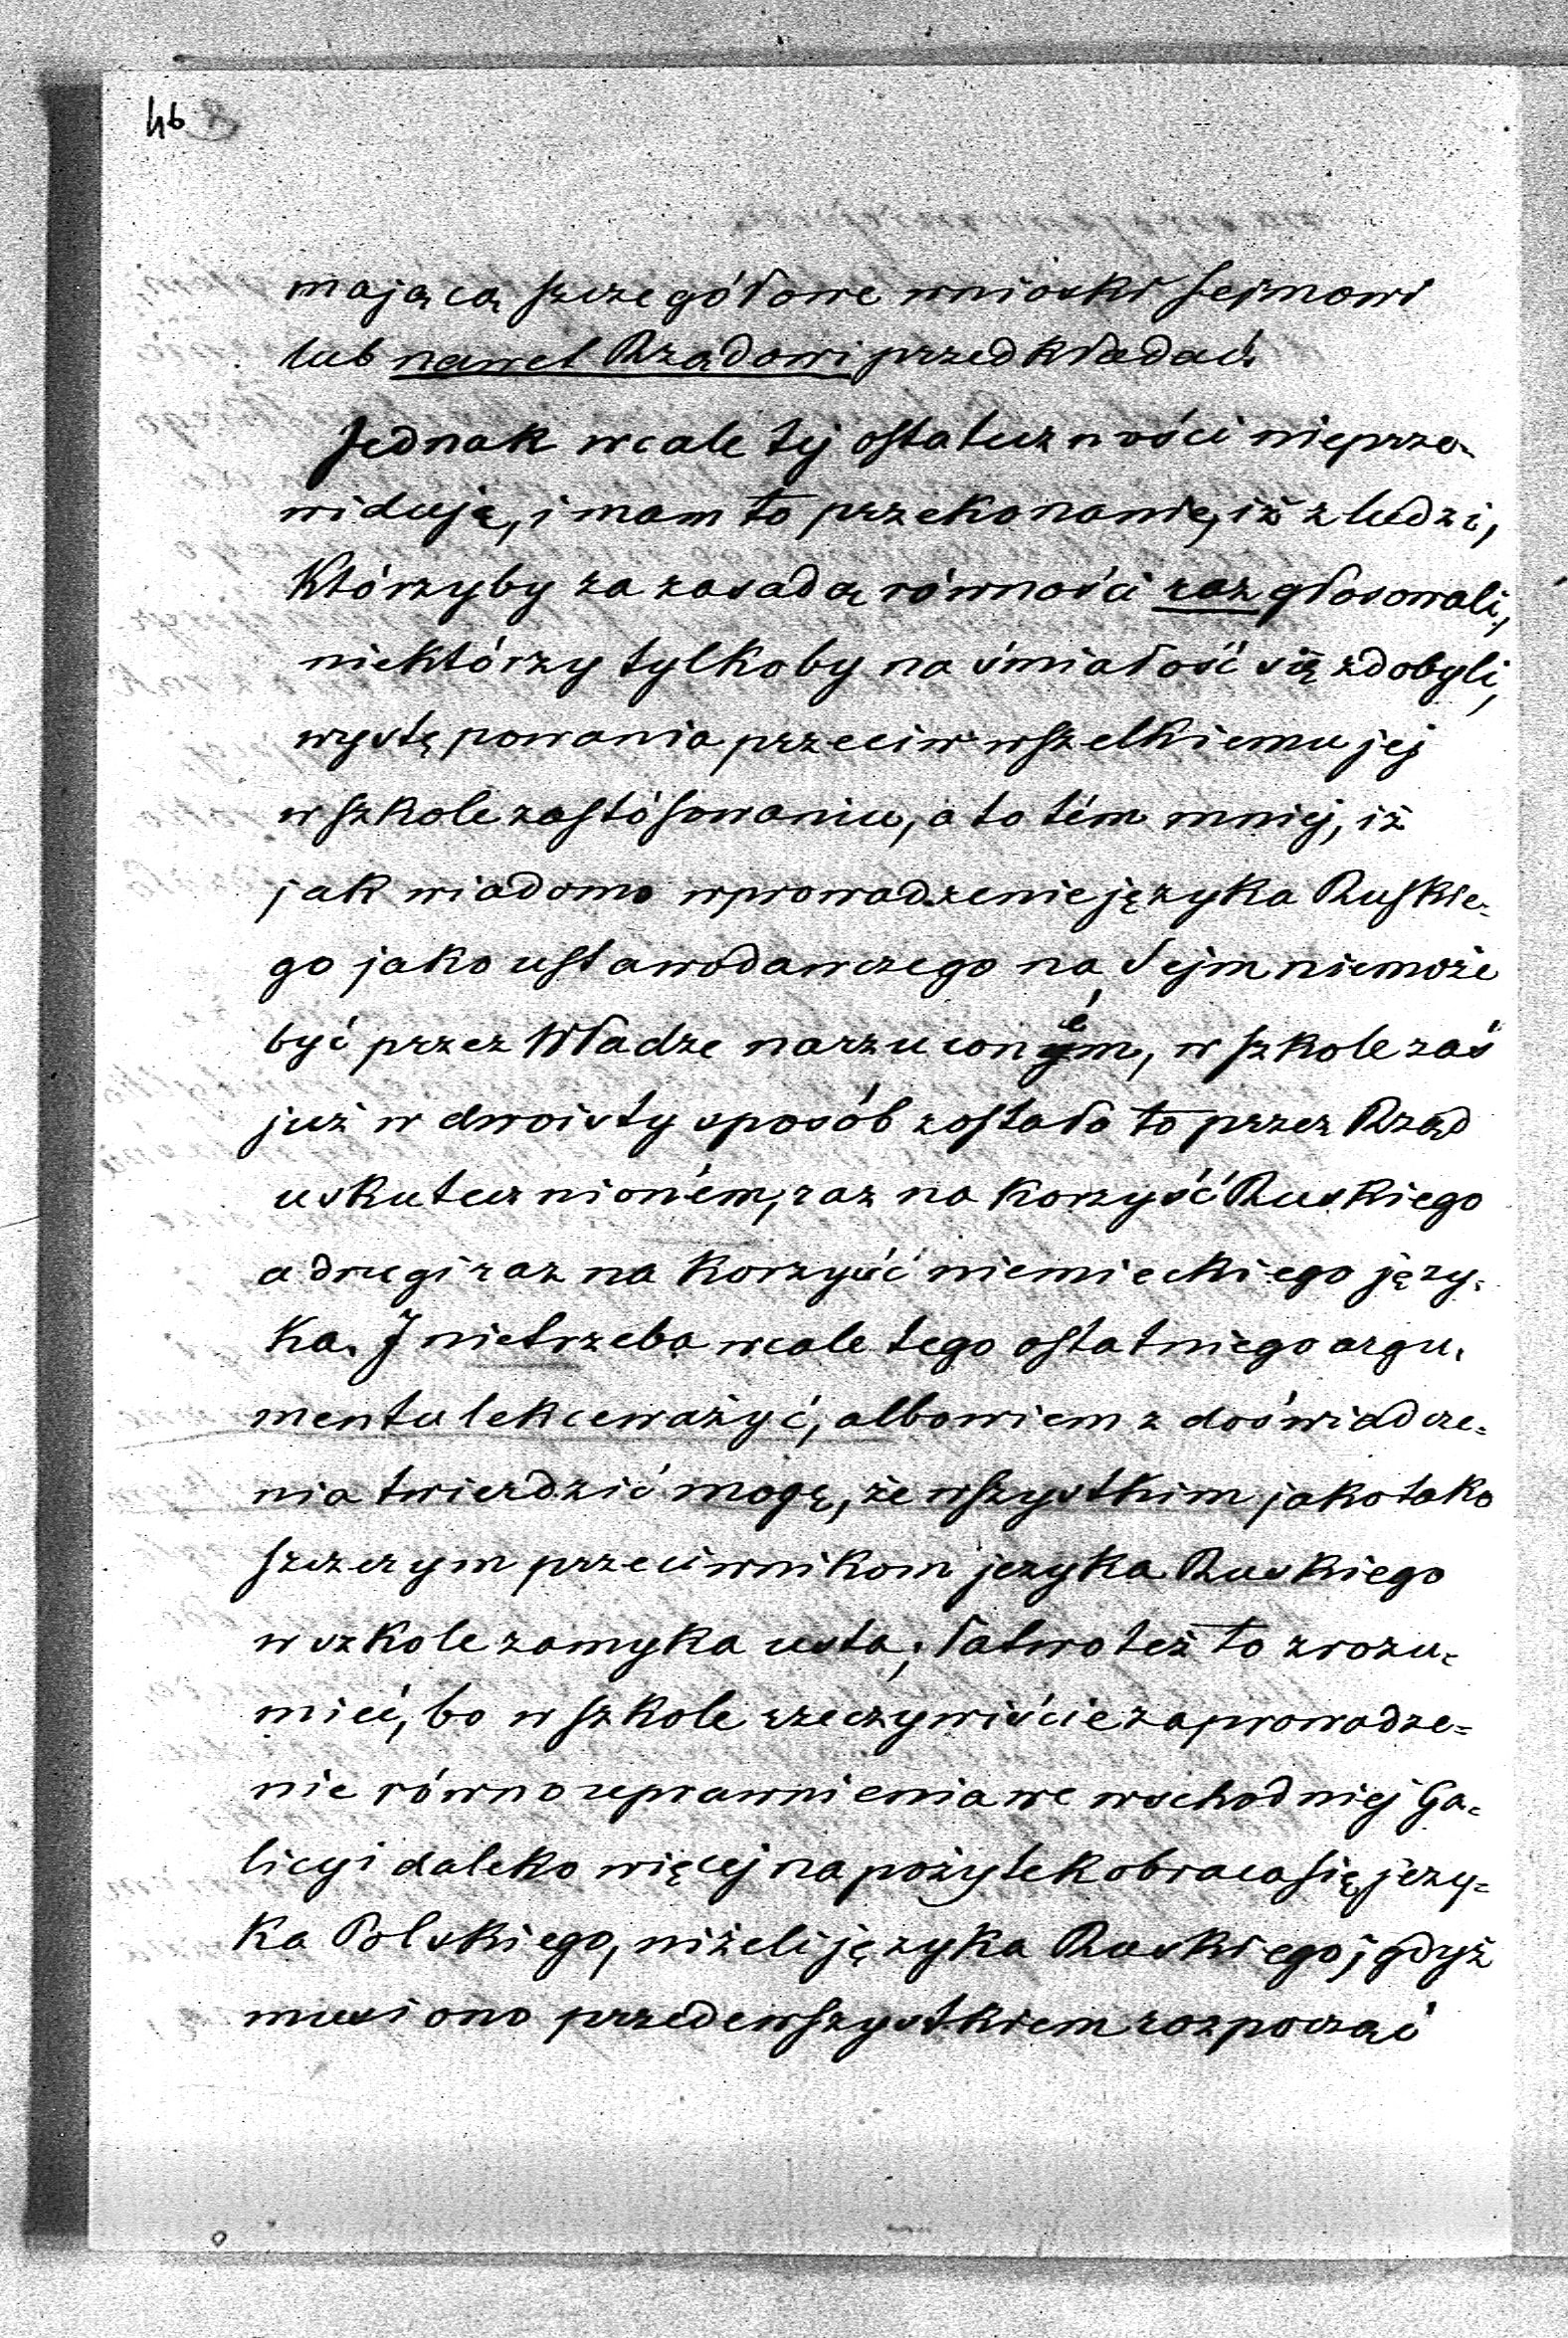 46
mającą szczegółowe wnioski sejmowi
lub nawet Rządowi przedkładać.
Jednak wcale tej ostateczności nieprze-
widuję, i mam to przekonanie, iż z ludzi,
którzyby za zasadą równości raz głosowali,
niektórzy tylkoby na śmiałość się zdobyli,
występowania przeciw wszelkiemu jej
w szkole zastósowaniu, a to tém mniej, iż
jak wiadomo wprowadzenie języka Ruskie-
go jako ustawodawczego na Sejm niemoże
być przez Władze narzuconém, w szkole zaś
już w dwoisty sposób zostało to przez Rząd
uskutecznioném, raz na korzyść Ruskiego
a drugi raz na korzyść niemieckiego języ-
ka. I nietrzeba wcale tego ostatniego argu-
mentu lekceważyć, albowiem z doświadcze-
nia twierdzić mogę, że wszystkim jakotako
szczerym przeciwnikom jezyka Ruskiego
w szkole zamyka usta; łatwo też to zrozu-
mieć, bo w szkole rzeczywiście zaprowadze-
nie równouprawnienia we wschodniej Ga-
licyi daleko więcej na pożytek obraca się jezy-
ka Polskiego, niżeli języka Ruskiego; gdyż
musi ono przedewszystkiem rozpocząć